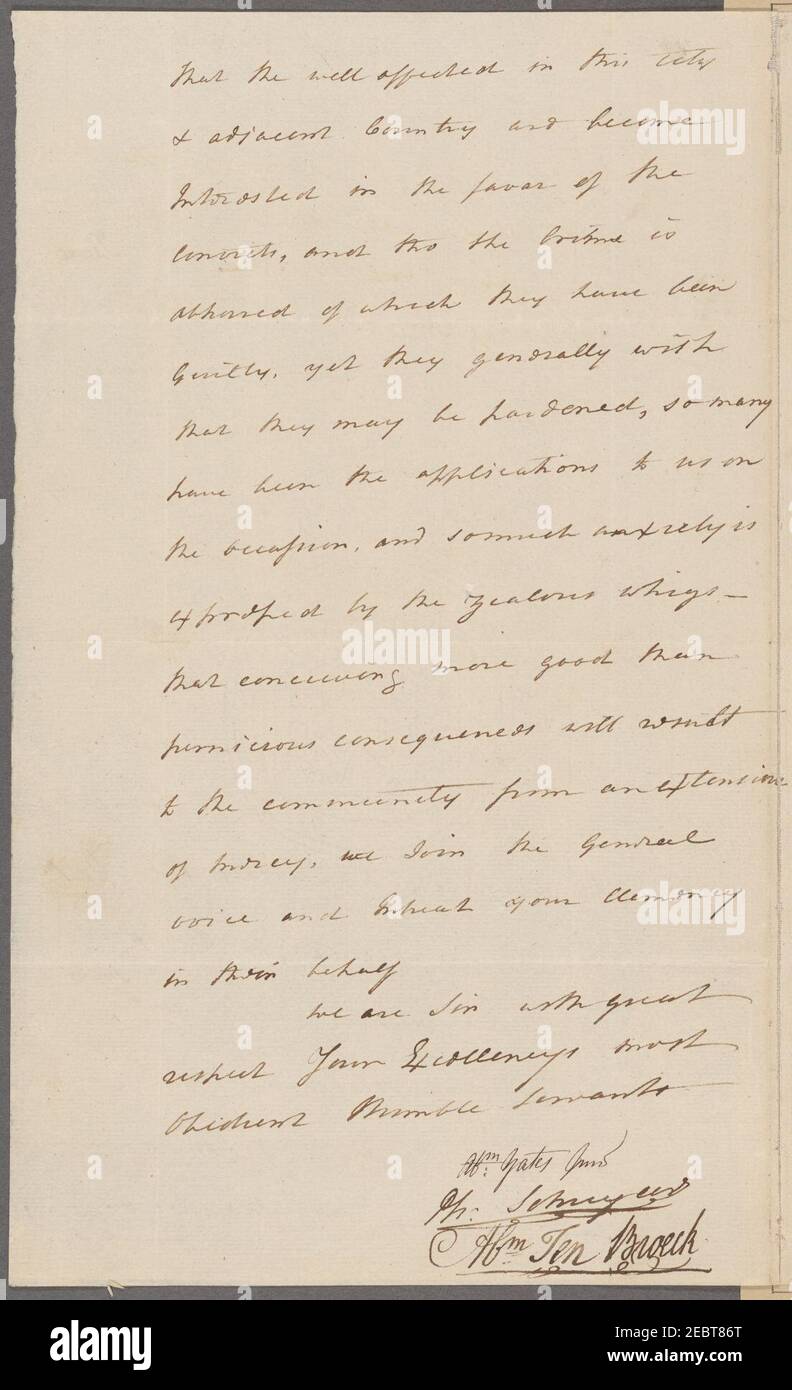 that the well affected in this city
& adjacent Country are become
Interested in the favor of the
convicts, and tho the crime is
abhorred of which they have been
Guilty, yet they generally wish
that they may be pardoned, so many
have been the applications to us on
the occasion, and so much anxiety is
expressed by the zealous whigs —
that conceiving more good than
pernicious consequences will result
to the community from an extension
of mercy, we Join the General
voice and Intreat your Clemency
in their behalf
We are Sir with great
respect Your Excellencys most
Obedient Humble Servants
Abm. Yates Junr
Ph: Schuyler
Abm Ten Broeck
alamy
alamy
Image ID: 2EBT86T
www.alamy.com